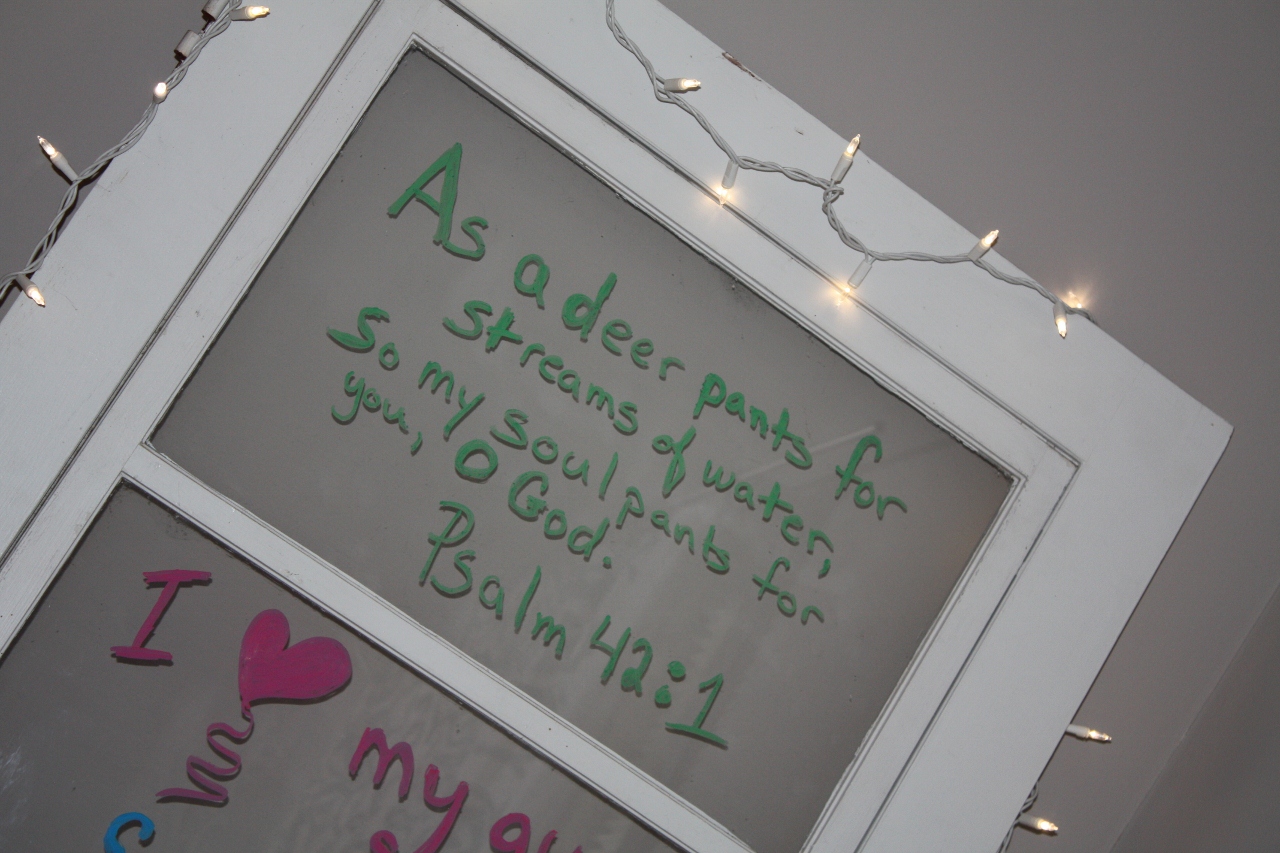 As a deer pants for
streams of water,
So my soul pants for
you, O God.
Psalm 42:1
I
my